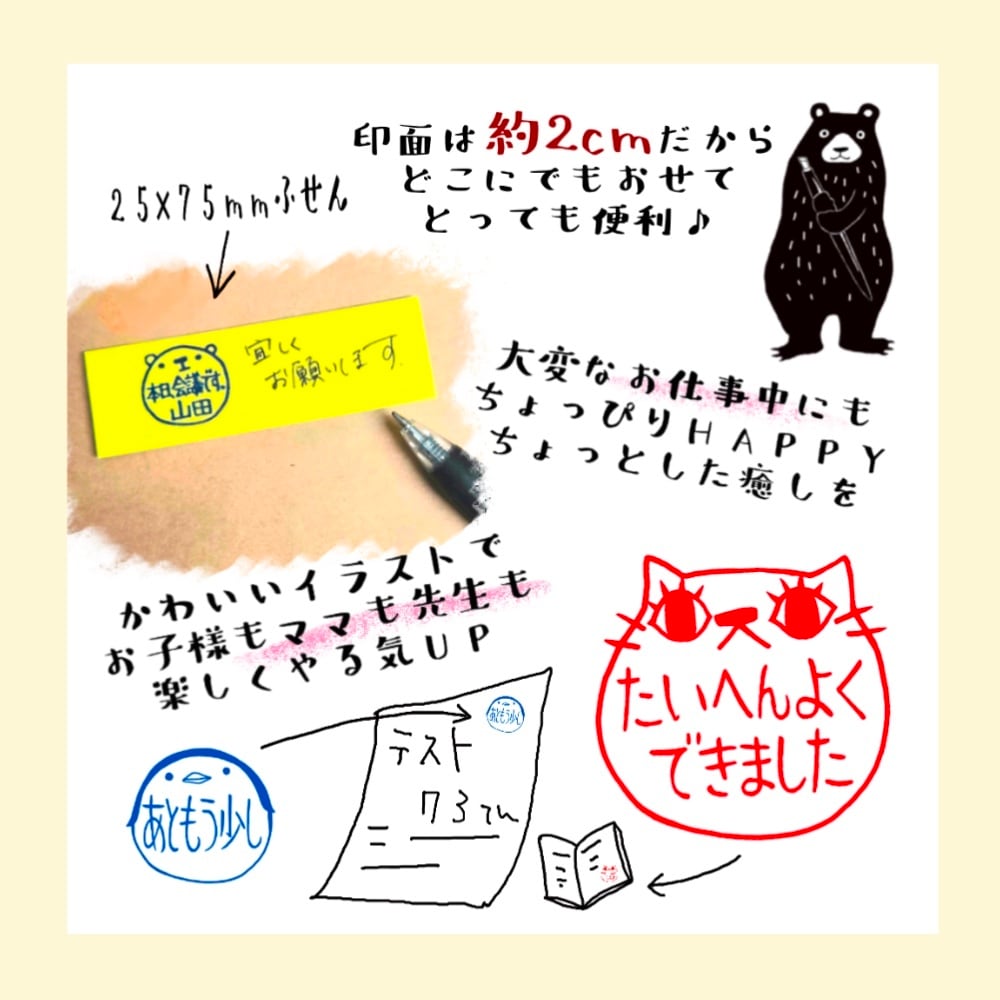 印面は約2cmだから
どこにでもおせて
とっても便利♪
25×75mmふせん
本日会議です。
山田
宜しく
お願いします。
大変なお仕事中にも
ちょっぴりHAPPY
ちょっとした癒しを
かわいいイラストで
お子様もママも先生も
楽しくやる気UP
たいへんよく
できました
あともう少し
あともう少し
テスト
73てん